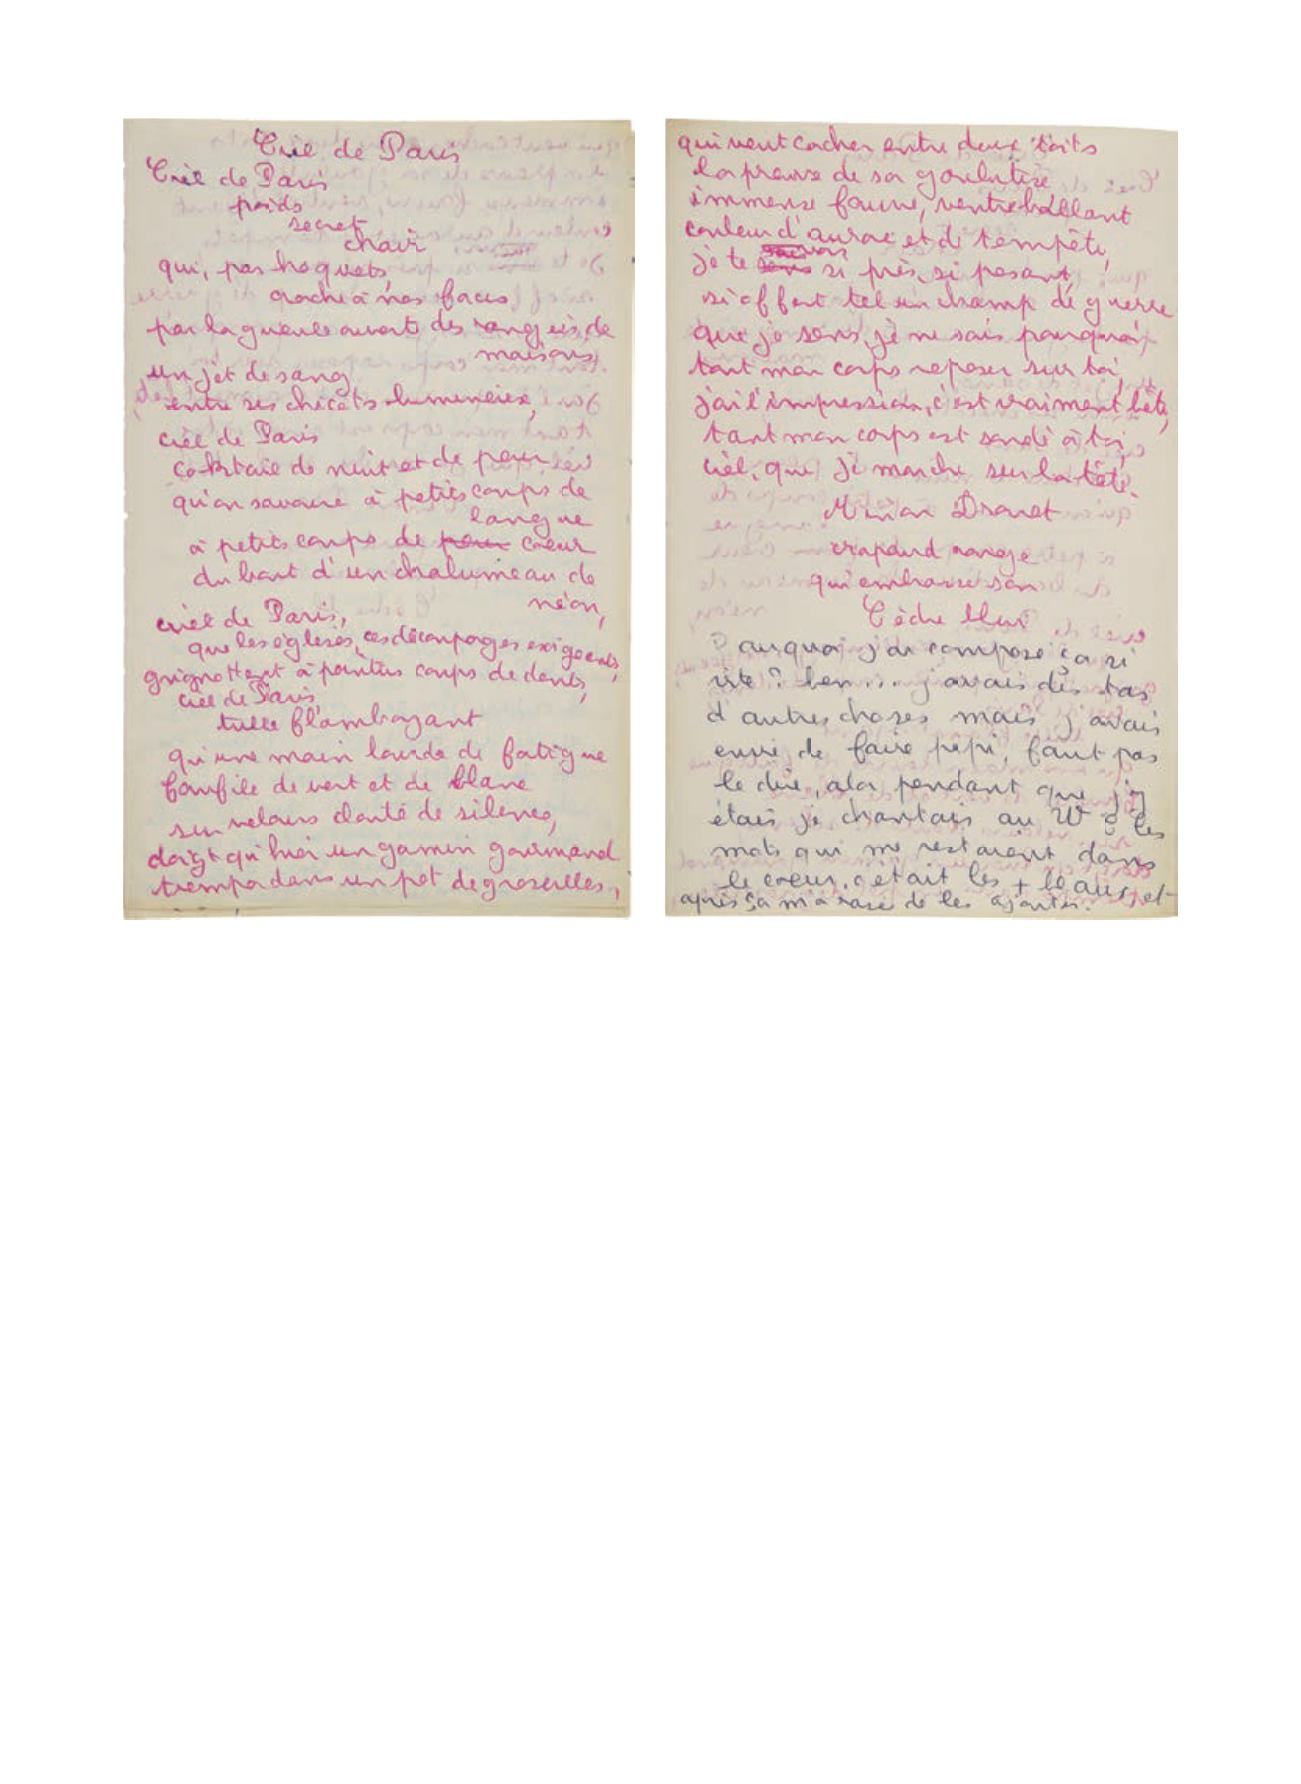 Ciel de Paris
Ciel de Paris
poids
secret
chair
qui, par hoquets,
crache à nos faces
par la gueule ouverte des rangées de
maisons
un jet de sang
entre ses chicots lumineux,
ciel de Paris
cocktail de nuit et de peur
qu'on savoure à petits coups de
langue
à petits coups de peur coeur
du haut d'un chalumeau de
néon,
ciel de Paris,
que les églises, ces découpages exigeants,
grignottent à pointus coups de dents,
ciel de Paris,
tulle flamboyant
qu'une main lourde de fatigue
faufile de vert et de blanc
sur velours clouté de silence,
doigt qu'hier un gamin gourmand
trempa dans un pot de groseilles,
qui veut cacher entre deux toits
la preuve de sa goulutise
immense fauve, ventre ballant
couleur d'aurore et de tempête,
je te si près, si pesant,
si offert tel un champ de guerre
que je sens, je ne sais pourquoi,
tant mon corps repose sur toi,
j'ai l'impression, c'est vraiment bête,
tant mon corps est soudé à toi,
ciel, que je marche sur la tête.
Minou Drouet
crapaud rouge
qui embrasse son
Cèdre bleu
Pourquoi j'ai composé ça si
vite ? ben... j'avais des tas
d'autres choses mais j'avais
envie de faire pipi, faut pas
le dire, alor pendant que j'y
étais je chantais au W C les
mots qui me restaient dans
le coeur. c'était les + beaux, et
après ça m'a rasé de les ajouter.